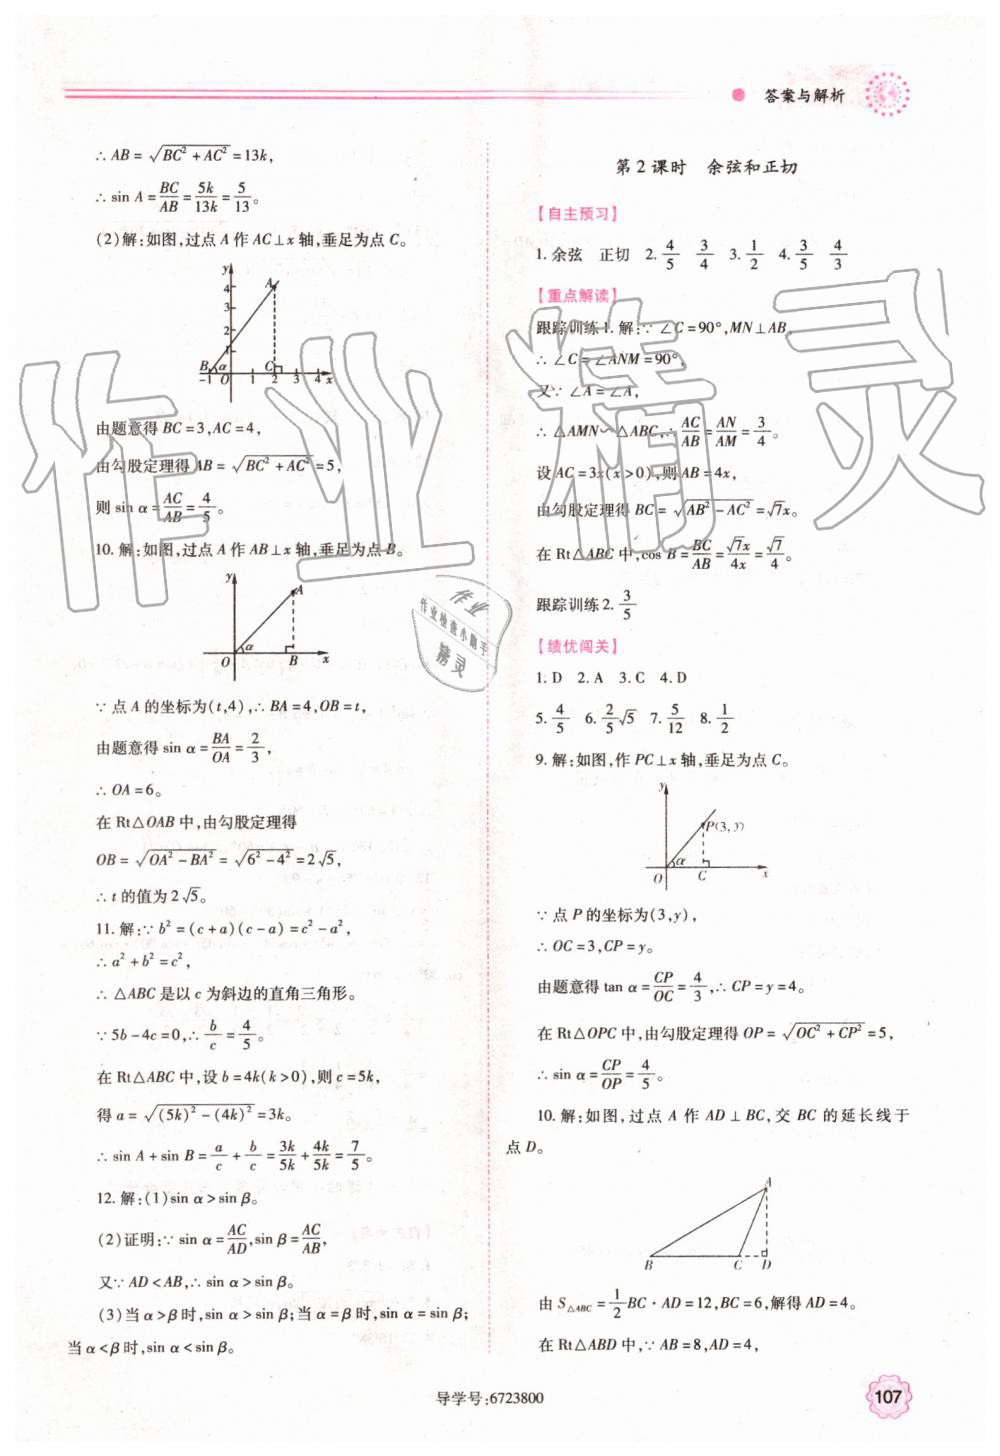 答案与解析
∴ AB = √(BC² + AC²) = 13k,
∴ sin A = BC/AB = 5k/13k = 5/13。
(2)解:如图,过点 A 作 AC⊥x 轴,垂足为点 C。
y
4
3
2
1
A
B
α
C
-1 O 1 2 3 4 x
由题意得 BC = 3, AC = 4,
由勾股定理得 AB = √(BC² + AC²) = 5,
则 sin α = AC/AB = 4/5。
10. 解:如图,过点 A 作 AB⊥x 轴,垂足为点 B。
y
A
α
O B x
∵ 点 A 的坐标为(t,4),∴ BA = 4, OB = t,
由题意得 sin α = BA/OA = 2/3,
∴ OA = 6。
在 Rt△OAB 中,由勾股定理得
OB = √(OA² − BA²) = √(6² − 4²) = 2√5,
∴ t 的值为 2√5。
11. 解:∵ b² = (c + a)(c − a) = c² − a²,
∴ a² + b² = c²,
∴ △ABC 是以 c 为斜边的直角三角形。
∵ 5b − 4c = 0,∴ b/c = 4/5。
在 Rt△ABC 中,设 b = 4k(k > 0),则 c = 5k,
得 a = √((5k)² − (4k)²) = 3k。
∴ sin A + sin B = a/c + b/c = 3k/5k + 4k/5k = 7/5。
12. 解:(1) sin α > sin β。
(2)证明:∵ sin α = AC/AD, sin β = AC/AB,
又∵ AD < AB,∴ sin α > sin β。
(3)当 α > β 时, sin α > sin β;当 α = β 时, sin α = sin β;
当 α < β 时, sin α < sin β。
第 2 课时 余弦和正切
【自主预习】
1. 余弦 正切 2. 4/5 3/4 3. 1/2 4. 3/5 4/3
【重点解读】
跟踪训练 1. 解:∵ ∠C = 90°, MN⊥AB,
∴ ∠C = ∠ANM = 90°,
又∵ ∠A = ∠A,
∴ △AMN∽△ABC,∴ AC/AB = AN/AM = 3/4。
设 AC = 3x(x > 0),则 AB = 4x,
由勾股定理得 BC = √(AB² − AC²) = √7x。
在 Rt△ABC 中, cos B = BC/AB = √7x/4x = √7/4。
跟踪训练 2. 3/5
【绩优闯关】
1. D 2. A 3. C 4. D
5. 4/5 6. 2/5√5 7. 5/12 8. 1/2
9. 解:如图,作 PC⊥x 轴,垂足为点 C。
y
P(3, y)
α
O C x
∵ 点 P 的坐标为(3,y),
∴ OC = 3, CP = y。
由题意得 tan α = CP/OC = 4/3,∴ CP = y = 4。
在 Rt△OPC 中,由勾股定理得 OP = √(OC² + CP²) = 5,
∴ sin α = CP/OP = 4/5。
10. 解:如图,过点 A 作 AD⊥BC,交 BC 的延长线于
点 D。
A
B C D
由 S△ABC = 1/2 BC · AD = 12, BC = 6,解得 AD = 4。
在 Rt△ABD 中,∵ AB = 8, AD = 4,
导学号:6723800
107
作业精灵
作业
作业检查小助手
精灵